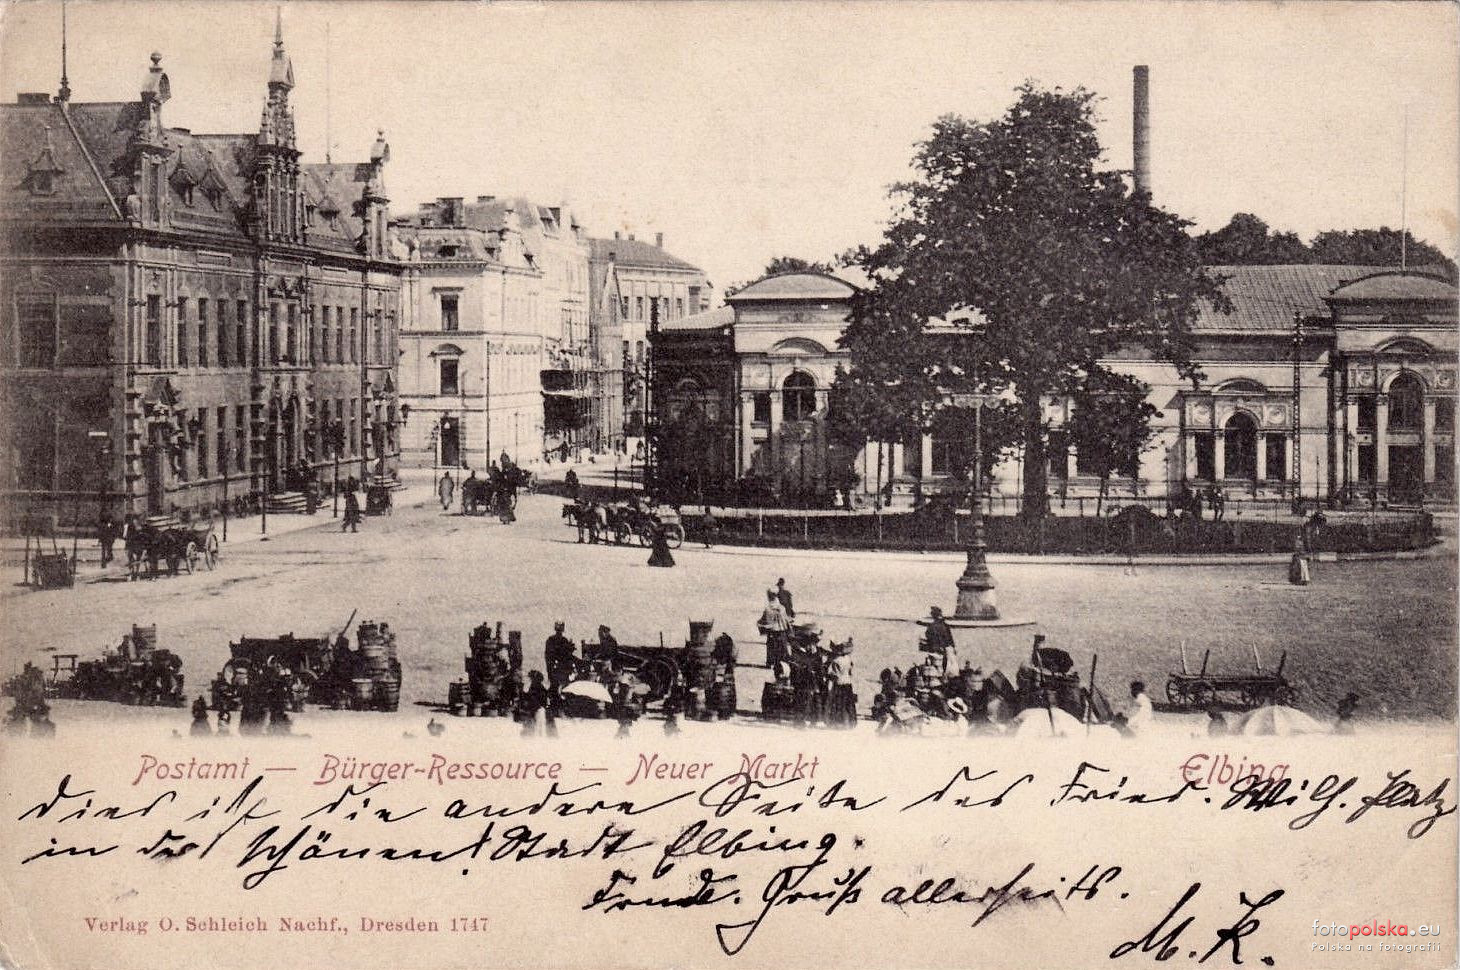 Postamt — Bürger-Ressource — Neuer Markt Elbing
dies ist die andere Seite des Fried. Wilh. Platz
in der schönen! Stadt Elbing.
Frndl. Gruß allerseits.
M. K.
Verlag O. Schleich Nachf., Dresden 1747
fotopolska.eu
Polska na fotografii